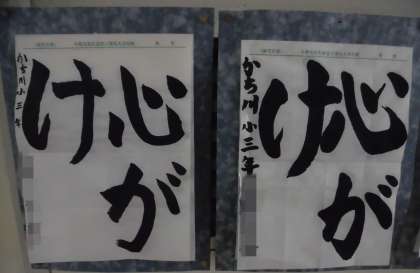 心が
け
かち川小三年
心が
け
かち川小三年